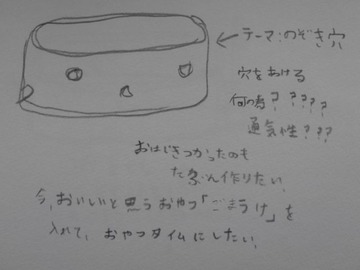 テーマ:のぞき穴
穴をあける
何の為? ????
通気性???
おはじきつかったのも
たぶん作りたい。
今、おいしいと思うおやつ「ごまうけ」を
入れて、おやつタイムにしたい。